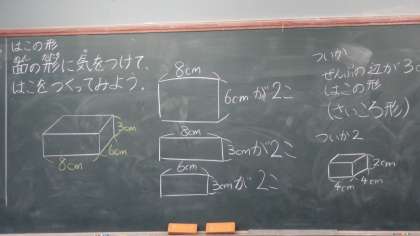 はこの形
面の形に気をつけて、
はこをつくってみよう.
3cm
6cm
8cm
8cm
6cmが2こ
8cm
3cmが2こ
6cm
3cmが2こ
ついか
ぜんぶの辺が3c
はこの形
(さいころ形)
ついか2
2cm
4cm
4cm